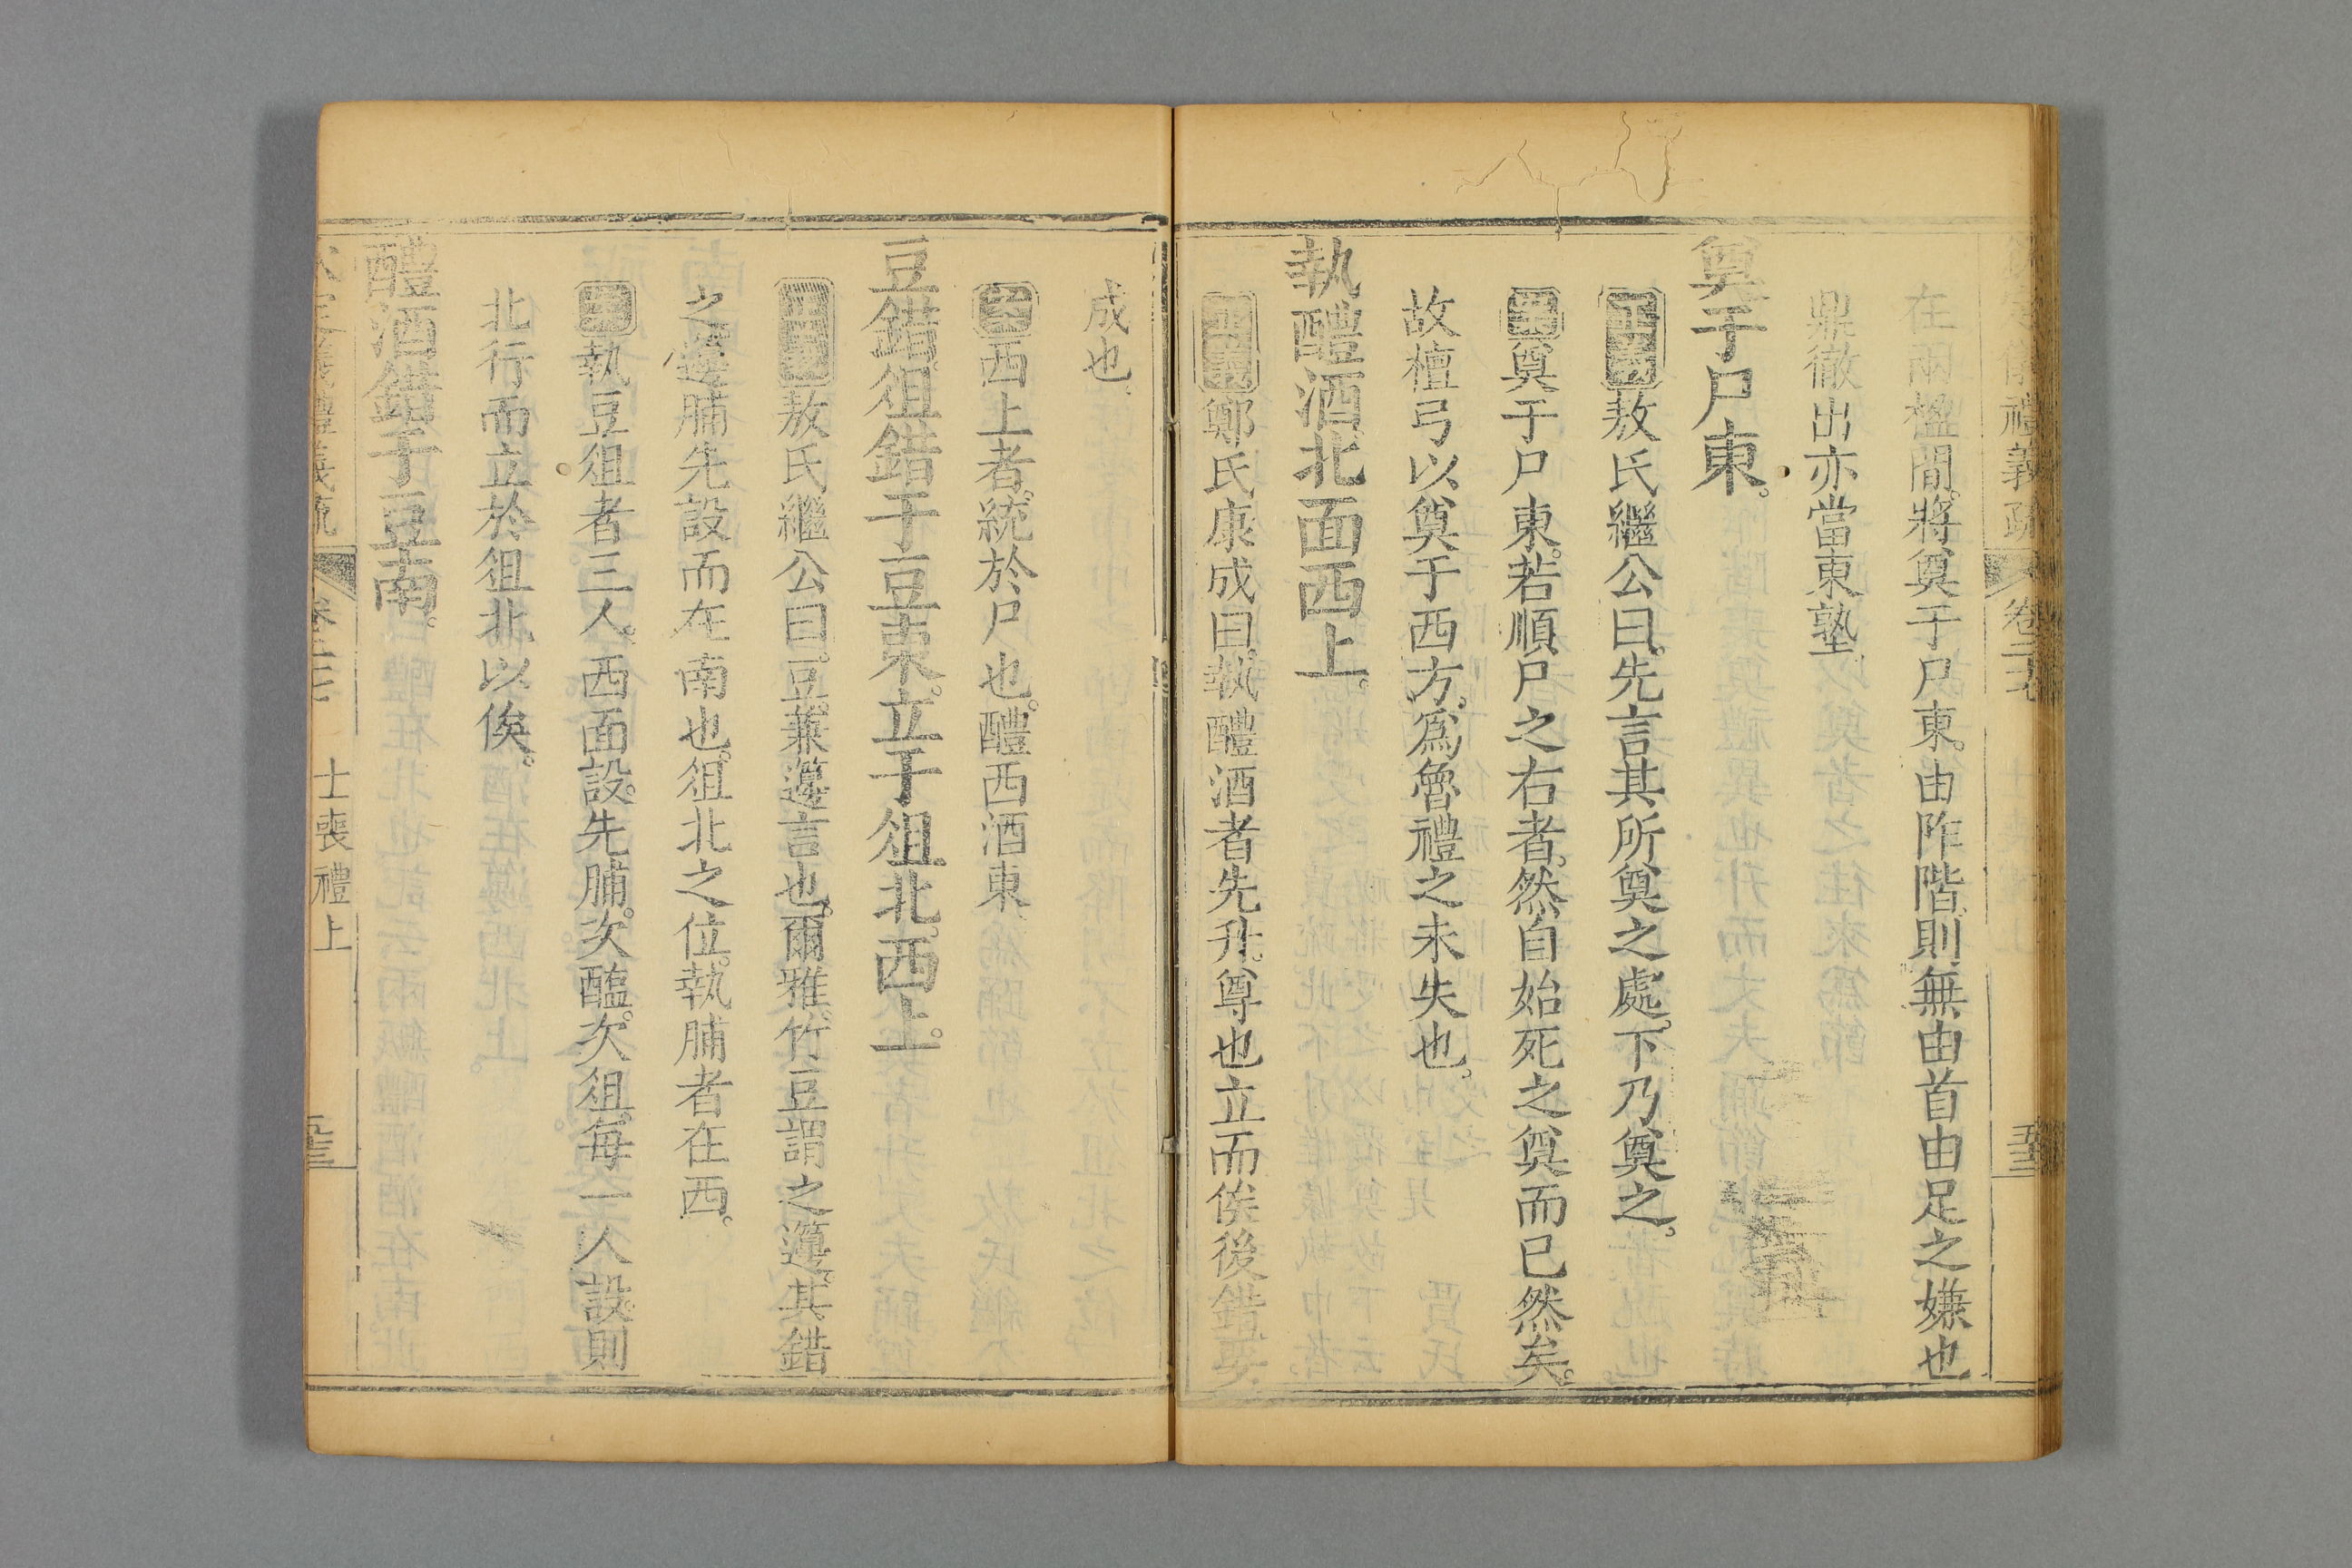 儀禮義疏 卷二十七 五十三
在兩楹間。將奠于尸東。由阼階。則無由首由足之嫌也
鼎徹出亦當東塾
奠于尸東。
正義敖氏繼公曰。先言其所奠之處。下乃奠之。
案奠于尸東。若順尸之右者。然自始死之奠而已然矣。
故檀弓以奠于西方。爲魯禮之末失也。
執醴酒。北面西上。
正義鄭氏康成曰。執醴酒者先升。尊也。立而俟後錯要
成也。
案西上者。統於尸也。醴西酒東
豆錯。俎錯于豆東。立于俎北。西上。
正義敖氏繼公曰。豆兼籩言也。爾雅。竹豆謂之籩。其錯
之籩脯先設而在南也。俎北之位。執脯者在西。
案執豆俎者三人。西面設。先脯。次醢。次俎。每一人設。則
北行而立於俎北以俟。
醴酒錯于豆南。
義禮義疏 士喪禮上 五十三